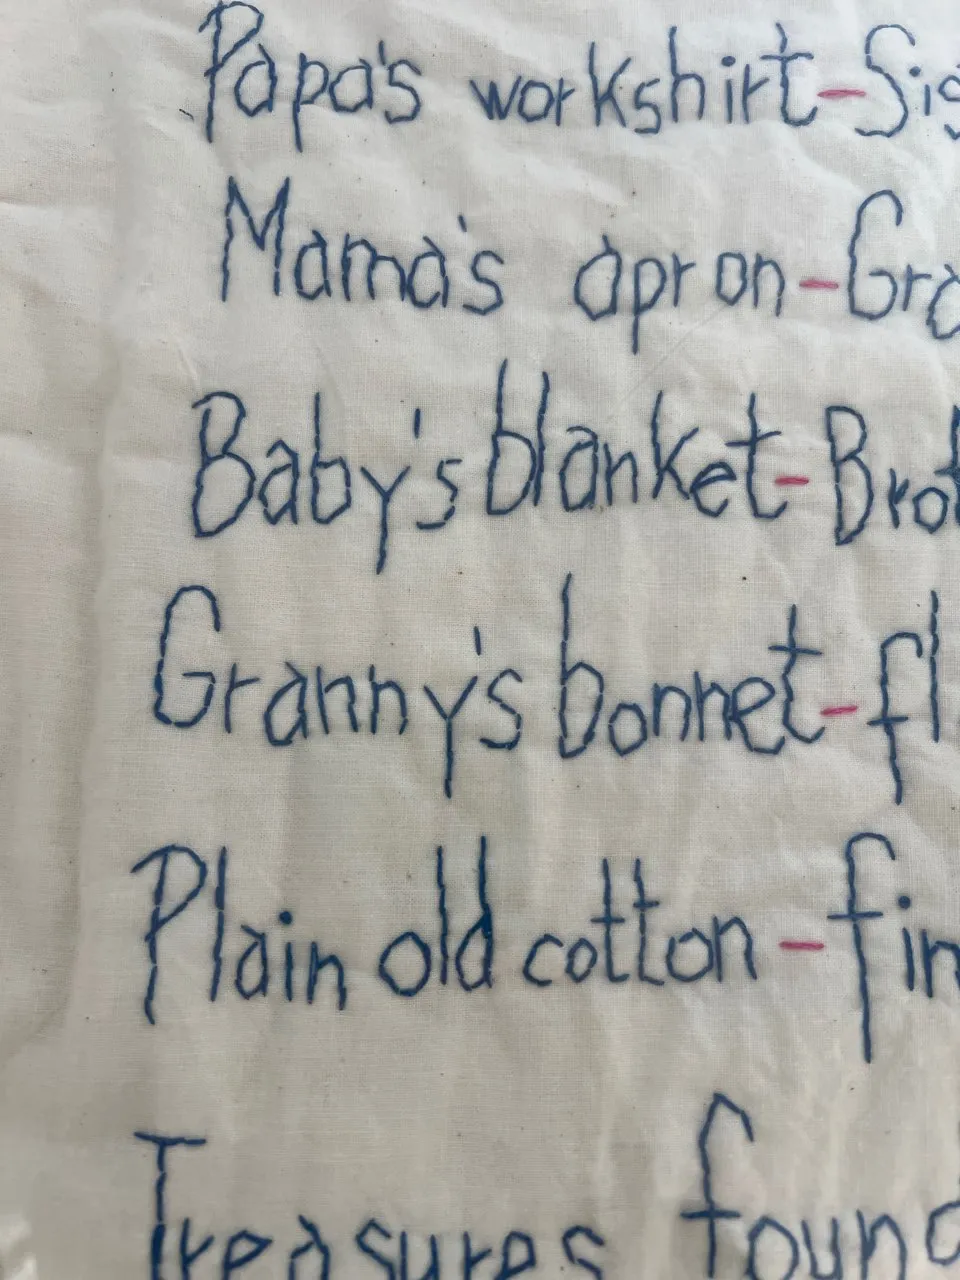 Papa's workshirt-Sis
Mama's apron-Gra
Baby's blanket-Brot
Granny's bonnet-fl
Plain old cotton-fin
Treasures found